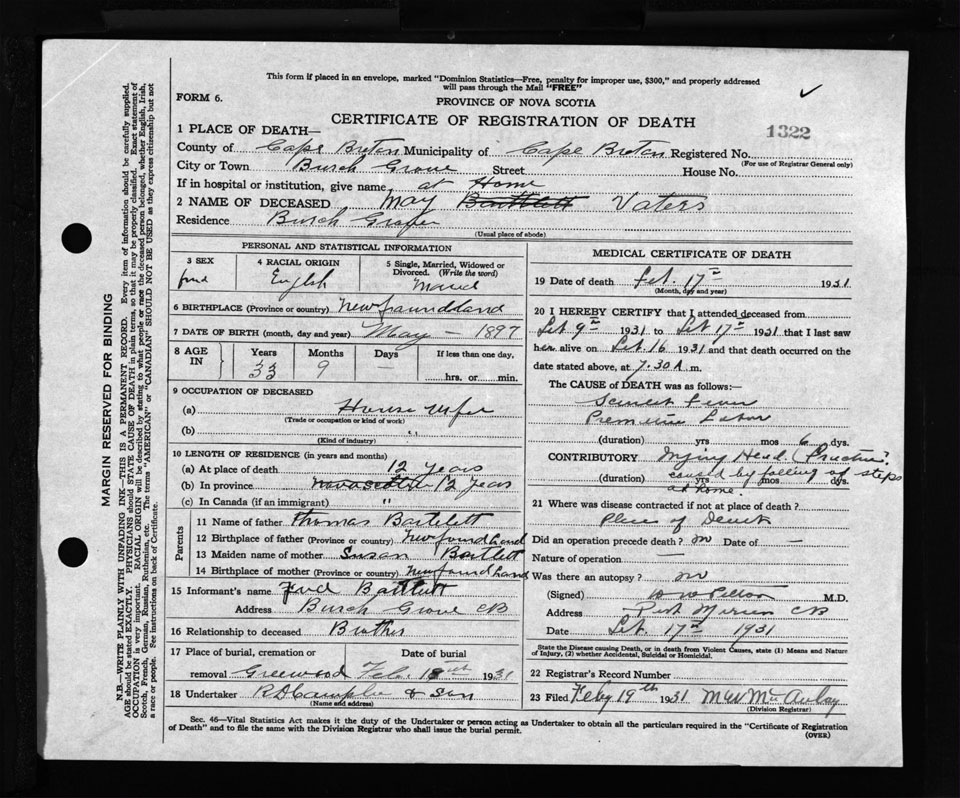 This form if placed in an envelope, marked "Dominion Statistics—Free, penalty for improper use, $300," and properly addressed
will pass through the Mail "FREE"
FORM 6.
PROVINCE OF NOVA SCOTIA
CERTIFICATE OF REGISTRATION OF DEATH
1322
1 PLACE OF DEATH—
County of Cape Breton Municipality of Cape Breton Registered No.
(For use of Registrar General only)
City or Town Birch Grove Street House No.
If in hospital or institution, give name at Home
2 NAME OF DECEASED May Bartlett Vaters
Residence Birch Grove
(Usual place of abode)
PERSONAL AND STATISTICAL INFORMATION
3 SEX
4 RACIAL ORIGIN English
5 Single, Married, Widowed or Divorced. (Write the word)
6 BIRTHPLACE (Province or country) Newfoundland
7 DATE OF BIRTH (month, day and year) May – 1897
8 AGE IN Years Months Days If less than one day,
33 9 — hrs. or min.
9 OCCUPATION OF DECEASED
(a) House Wife
(Trade or occupation or kind of work)
(b) "
(Kind of industry)
10 LENGTH OF RESIDENCE (in years and months)
(a) At place of death 12 Years
(b) In province novascotia 12 Years
(c) In Canada (if an immigrant) "
Parents
11 Name of father Thomas Bartlett
12 Birthplace of father (Province or country) Newfoundland
13 Maiden name of mother Susan Bartlett
14 Birthplace of mother (Province or country) Newfoundland
15 Informant's name Bartlett
Address Birch Grove CB
16 Relationship to deceased Brother
17 Place of burial, cremation or removal Greenwood
Date of burial Feb. 1931
18 Undertaker & Son
(Name and address)
MEDICAL CERTIFICATE OF DEATH
19 Date of death 17th 1931
(Month, day and year)
20 I HEREBY CERTIFY that I attended deceased from
9th 1931 to 17th 1931 that I last saw
her alive on 16 1931 and that death occurred on the
date stated above, at 7.30 A.m.
The CAUSE of DEATH was as follows:—
Scarlet Fever
Labor
(duration) yrs mos 6 dys.
CONTRIBUTORY Head
caused by falling off steps
at home.
(duration) yrs. mos. dys.
21 Where was disease contracted if not at place of death?
Place of
Did an operation precede death? no Date of —
Nature of operation —
Was there an autopsy? no
(Signed) M.D.
Address Port Morien CB
Date 17th 1931
State the Disease causing Death, or in death from Violent Causes, state (1) Means and Nature
of Injury, (2) whether Accidental, Suicidal or Homicidal.
22 Registrar's Record Number
23 Filed Feby 19th 1931
(Division Registrar)
Sec. 46—Vital Statistics Act makes it the duty of the Undertaker or person acting as Undertaker to obtain all the particulars required in the "Certificate of Registration
of Death" and to file the same with the Division Registrar who shall issue the burial permit.
(OVER)
MARGIN RESERVED FOR BINDING
N.B.—WRITE PLAINLY WITH UNFADING INK—THIS IS A PERMANENT RECORD. Every item of information should be carefully supplied.
AGE should be stated EXACTLY. PHYSICIANS should STATE CAUSE OF DEATH in plain terms, so that it may be properly classified. Exact statement of
OCCUPATION is very important. RACIAL ORIGIN will be described by stating to what people or race the deceased person belonged, whether English, Irish,
Scotch, French, German, Russian, Ruthenian, etc. The terms "AMERICAN" or "CANADIAN" SHOULD NOT BE USED as they express citizenship but not
a race or people. See instructions on back of Certificate.